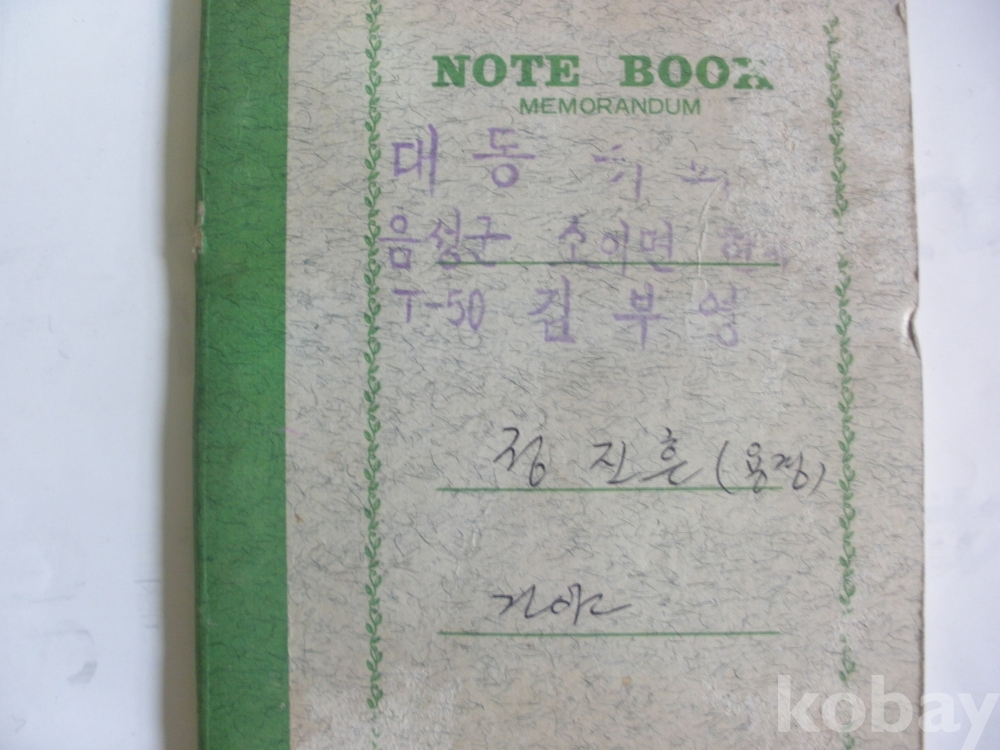 NOTE BOOK
MEMORANDUM
대동
음성군 소이면
T-50 김부영
정진흔(용정)
kobay